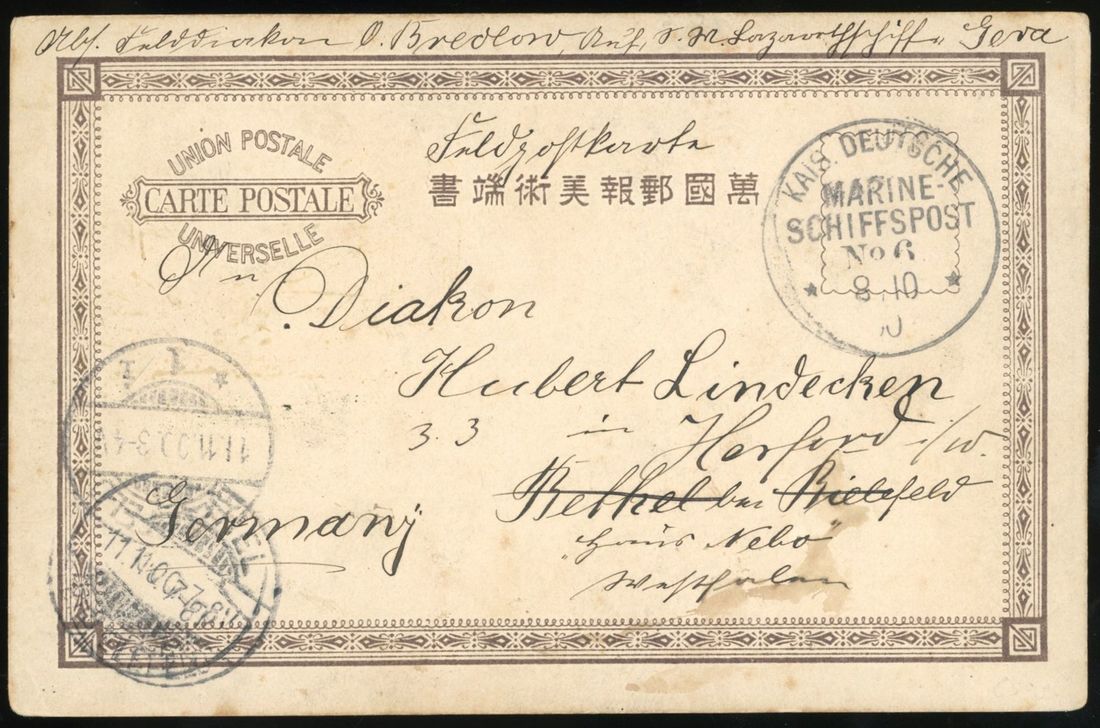 Abs. Felddiakon O. Bredlow, Auf S. M. Lazarethschiff „Gera
UNION POSTALE
CARTE POSTALE
UNIVERSELLE
Feldpostkarte
書端術美報郵國萬
KAIS. DEUTSCHE
MARINE-
SCHIFFSPOST
No 6
8.10
An
Diakon
Hubert Lindecken
3. 3 in Herford i/w.
Bethel bei Bielefeld
Germany
„Haus Nebo"
Westfalen
11.11.0